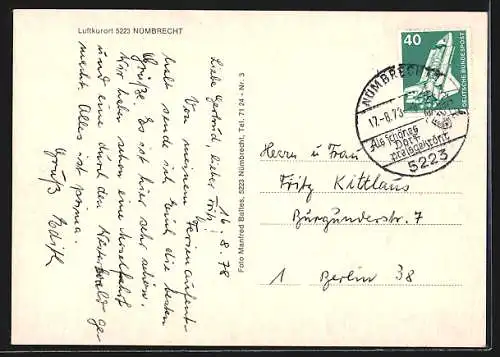 Luftkurort 5223 NÜMBRECHT
16.8.78
Liebe Gertrud, lieber Fritz
Von meinem Ferienaufent-
halt sende ich Euch die besten
Grüße. Es ist hier sehr schön.
Wir haben schon eine Moselfahrt
und eine durch den Westerwald ge
macht. Alles ist prima.
Gruß Edith
Foto Manfred Baltes, 5223 Nümbrecht, Tel. 71 24 - Nr. 3
40
DEUTSCHE BUNDESPOST
NÜMBRECHT
17.-8.78
Als schönstes
Dorf
preisgekrönt
5223
Herrn u. Frau
Fritz Kittlaus
Burgunderstr. 7
1 Berlin 38